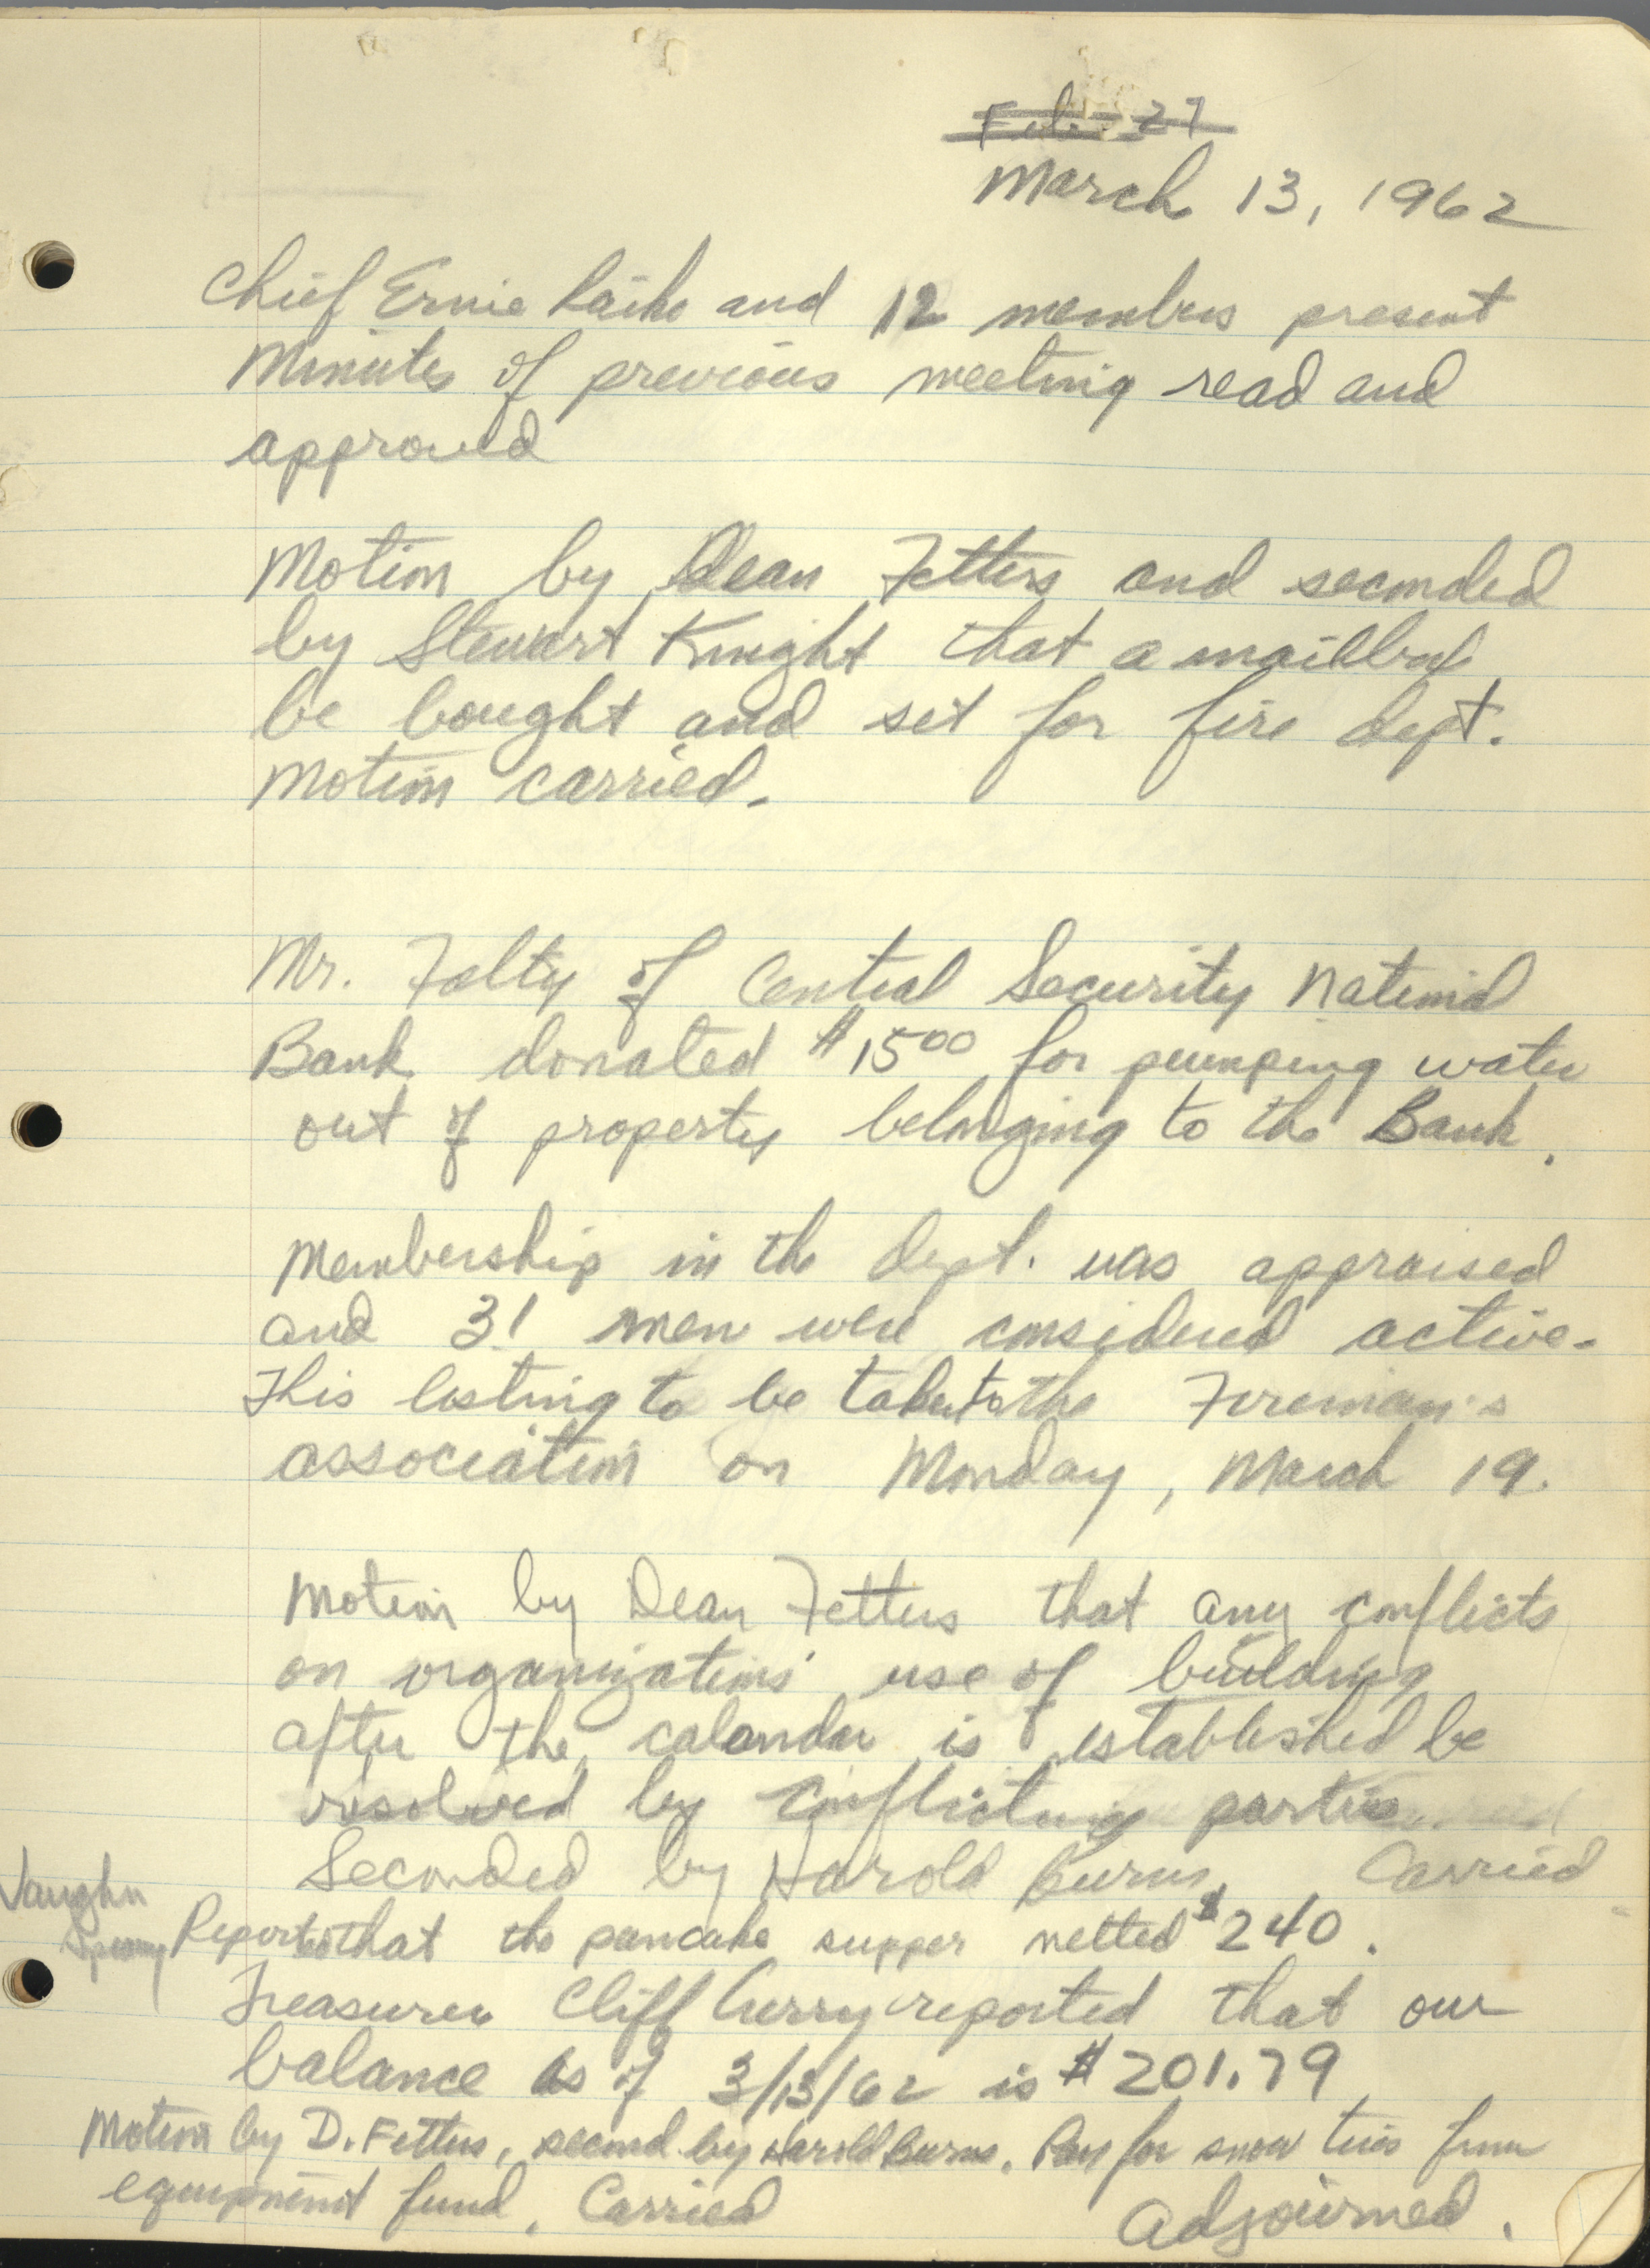 Feb. 27
March 13, 1962
Chief Ernie Laiho and 12 members present
Minutes of previous meeting read and
approved
Motion by Dean Fetters and seconded
by Stewart Knight that a mailbox
be bought and set for fire dept.
Motion carried.
Mr. Falty of Central Security National
Bank donated $15 00 for pumping water
out of property belonging to the Bank.
Membership in the dept. was appraised
and 31 men were considered active.
This listing to be taken to the Firemian's
association on Monday, March 19.
Motion by Dean Fetters that any conflicts
on organizations' use of building
after the calandar is established be
resolved by conflicting parties
Seconded by Harold Burns. Carried
Vaughn
Reported that the pancake supper netted $240.
Treasurer Cliff Curry reported that our
balance as of 3/13/62 is $201.79
Motion by D. Fetters, second by Harold Burns. Pay for snow tires from
equipment fund. Carried
Adjourned.